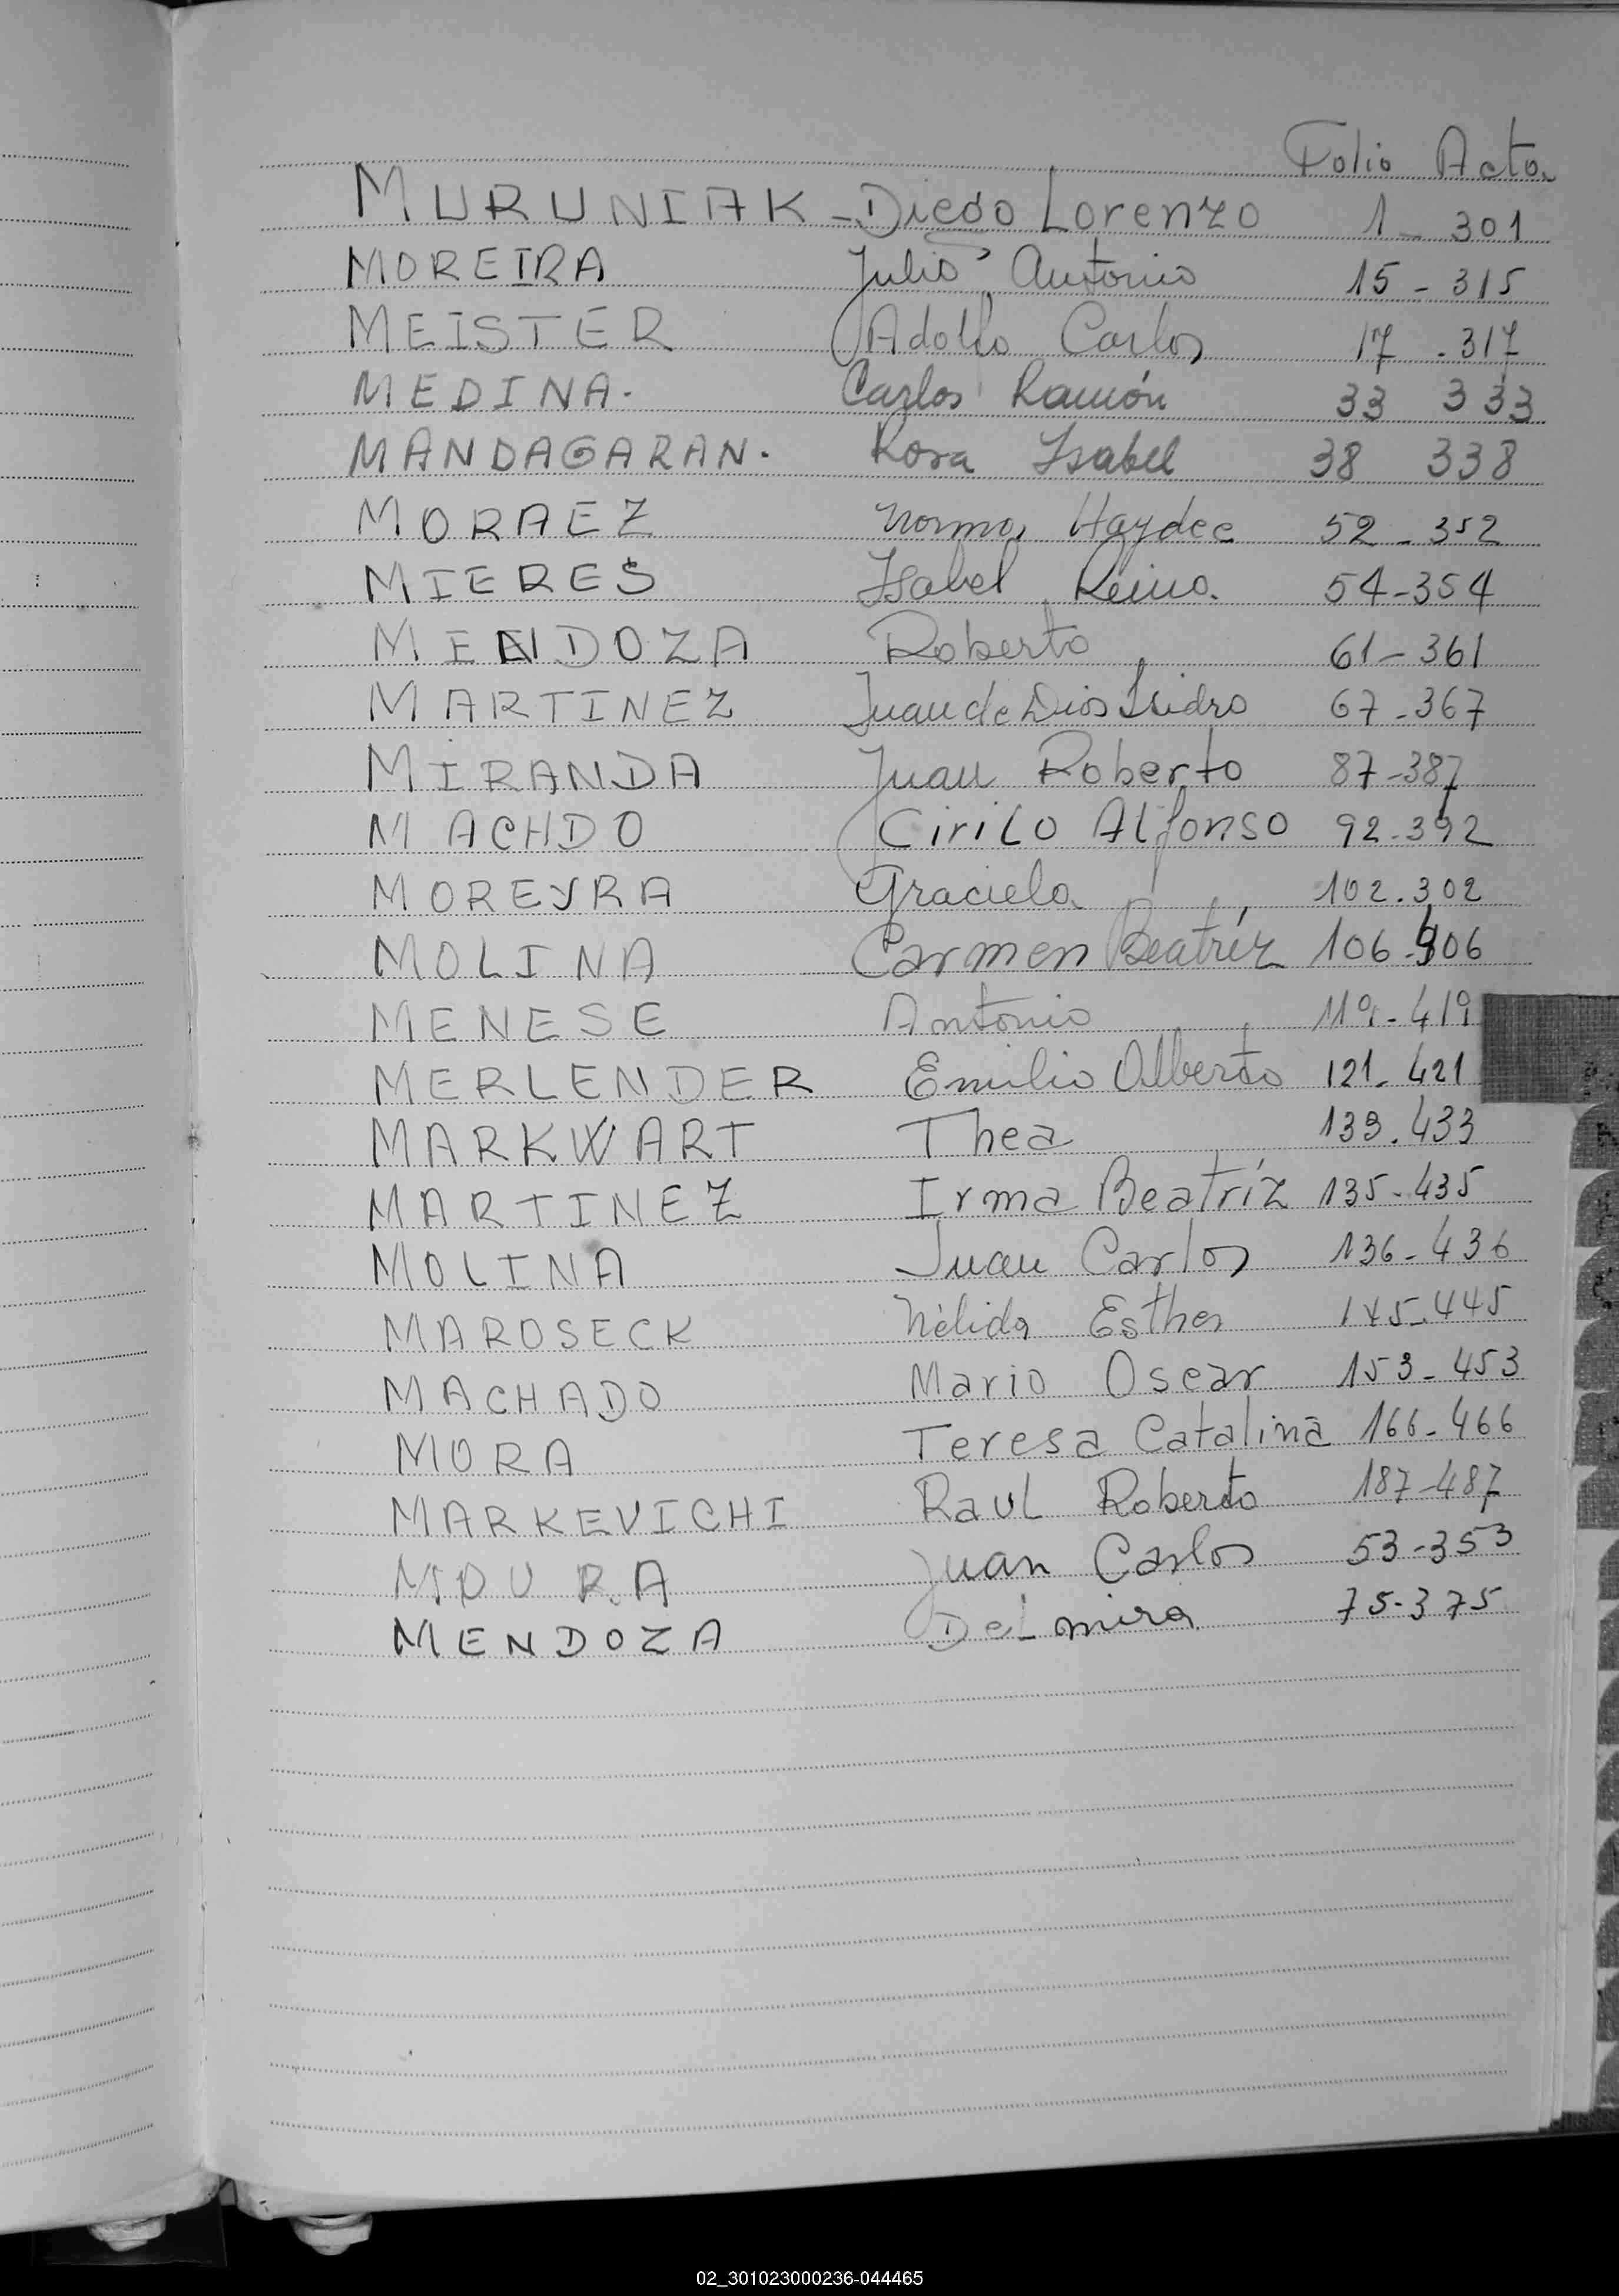 Folio Acta.
MURUNIAK - Diego Lorenzo 1 - 301
MOREIRA Julio Antonio 15 - 315
MEISTER Adolfo Carlos 17 - 317
MEDINA. Carlos Ramón 33 333
MANDAGARAN. Rosa Isabel 38 338
MORAEZ Norma Haydee 52 - 352
MIERES Isabel 54 - 354
MENDOZA Roberto 61 - 361
MARTINEZ Juan de Dios Isidro 67 - 367
MIRANDA Juan Roberto 87 - 387
MACHDO Cirilo Alfonso 92 - 392
MOREYRA Graciela 102 . 302
MOLINA Carmen Beatríz 106 - 406
MENESE Antonio 119 - 419
MERLENDER Emilio Alberto 121 - 421
MARKWART Thea 133 . 433
MARTINEZ Irma Beatríz 135 - 435
MOLINA Juan Carlos 136 - 436
MAROSECK Nélida Esther 145 - 445
MACHADO Mario Oscar 153 - 453
MORA Teresa Catalina 166 - 466
MARKEVICHI Raul Roberto 187 - 487
MOURA Juan Carlos 53 - 353
MENDOZA Delmira 75 - 375
02_301023000236-044465